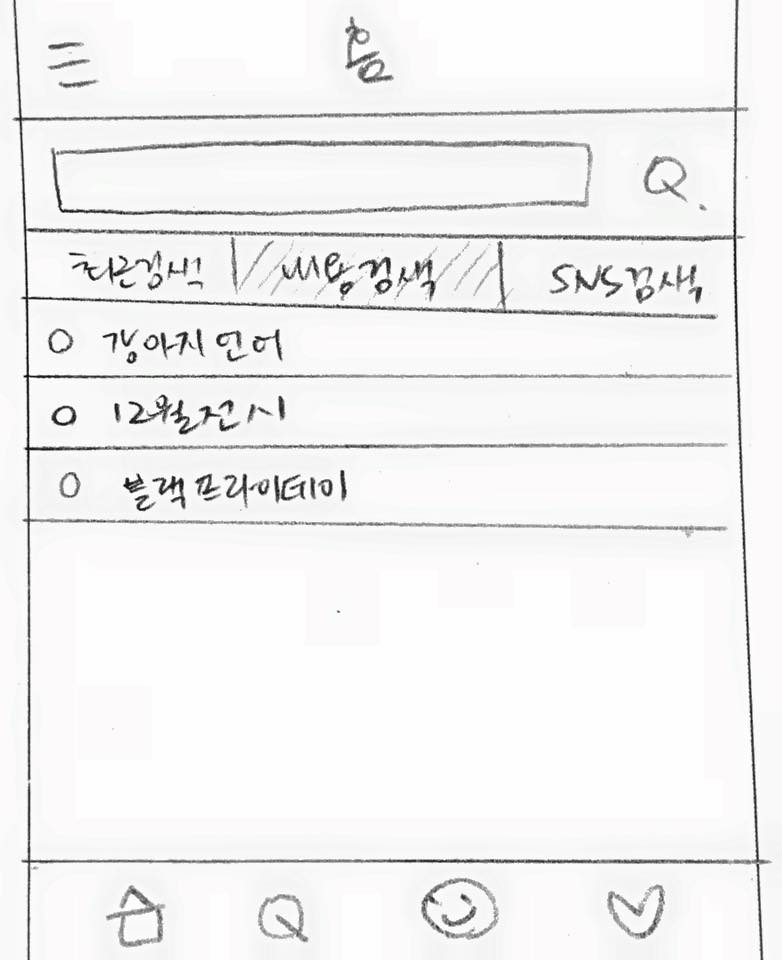 홈
최근검색 내용검색 SNS검색
강아지 언어
12월전시
블랙프라이데이